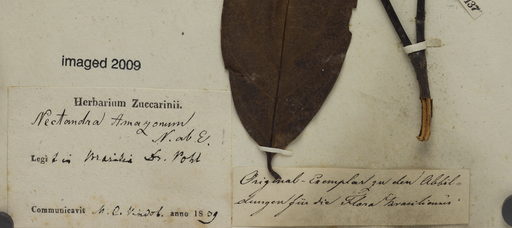 137
imaged 2009
Herbarium Zuccarinii.
Nectandra Amazonum
N. ab E.
Legit in Brasilia Dr. Pohl
Communicavit M. C. Vindob. anno 1839
Original-Exemplar zu den Abbil-
dungen für die Flora Brasiliensis